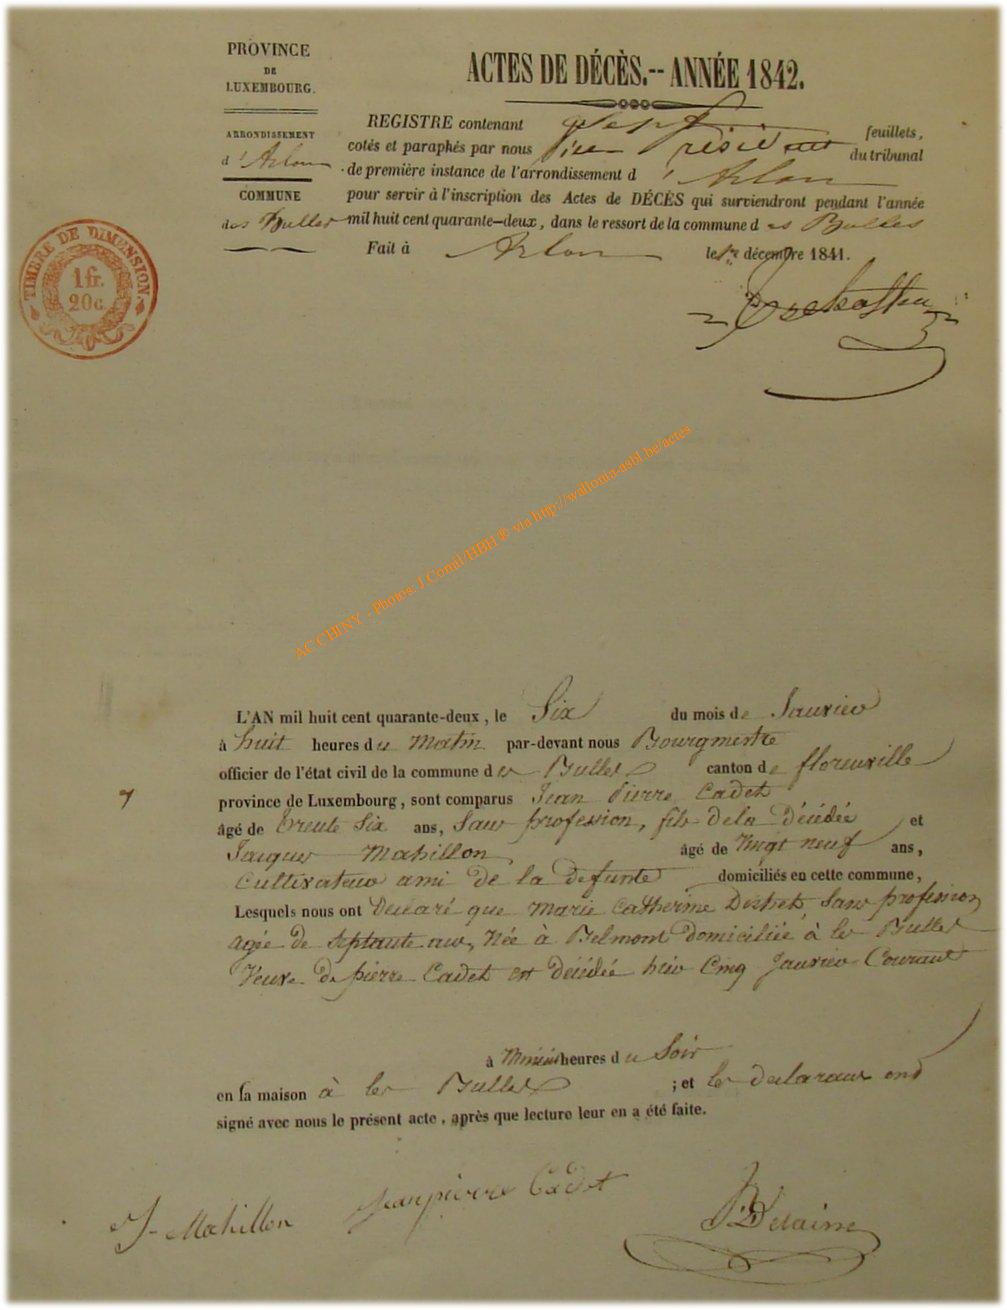 PROVINCE
DE
LUXEMBOURG.
ARRONDISSEMENT
d'Arlon
COMMUNE
des Bulles
TIMBRE DE DIMENSION.
1 fr.
20 c.
ACTES DE DÉCÈS.-- ANNÉE 1842.
REGISTRE contenant Sept feuillets,
cotés et paraphés par nous Vice Président du tribunal
de première instance de l'arrondissement d'Arlon
pour servir à l'inscription des Actes de DÉCÈS qui surviendront pendant l'année
mil huit cent quarante-deux, dans le ressort de la commune des Bulles
Fait à Arlon le décembre 1841.
AC CHINY - Photos. J.Comil/HBH ® via http://wallonia-asbl.be/actes
L'AN mil huit cent quarante-deux, le Six du mois de Janvier
à huit heures du Matin par-devant nous Bourgmestre
officier de l'état civil de la commune des Bulles canton de florenville
7
province de Luxembourg, sont comparus Jean Pierre Cadet
âgé de trente Six ans, Sans profession, fils de la Décédée et
Jacques Mahillon, âgé de Vingt neuf ans,
Cultivateur ami de la defunte domiciliés en cette commune,
Lesquels nous ont declaré que Marie Catherine Sans profession
agée de Septante ans, Née à Belmont domiciliée à les Bulles
Veuve de pierre Cadet est décédée hier Cinq Janvier Courant
à heures du Soir
en sa maison à les Bulles ; et les declarans ond
signé avec nous le présent acte, après que lecture leur en a été faite.
J- Mahillon
Jeanpierre Cadet